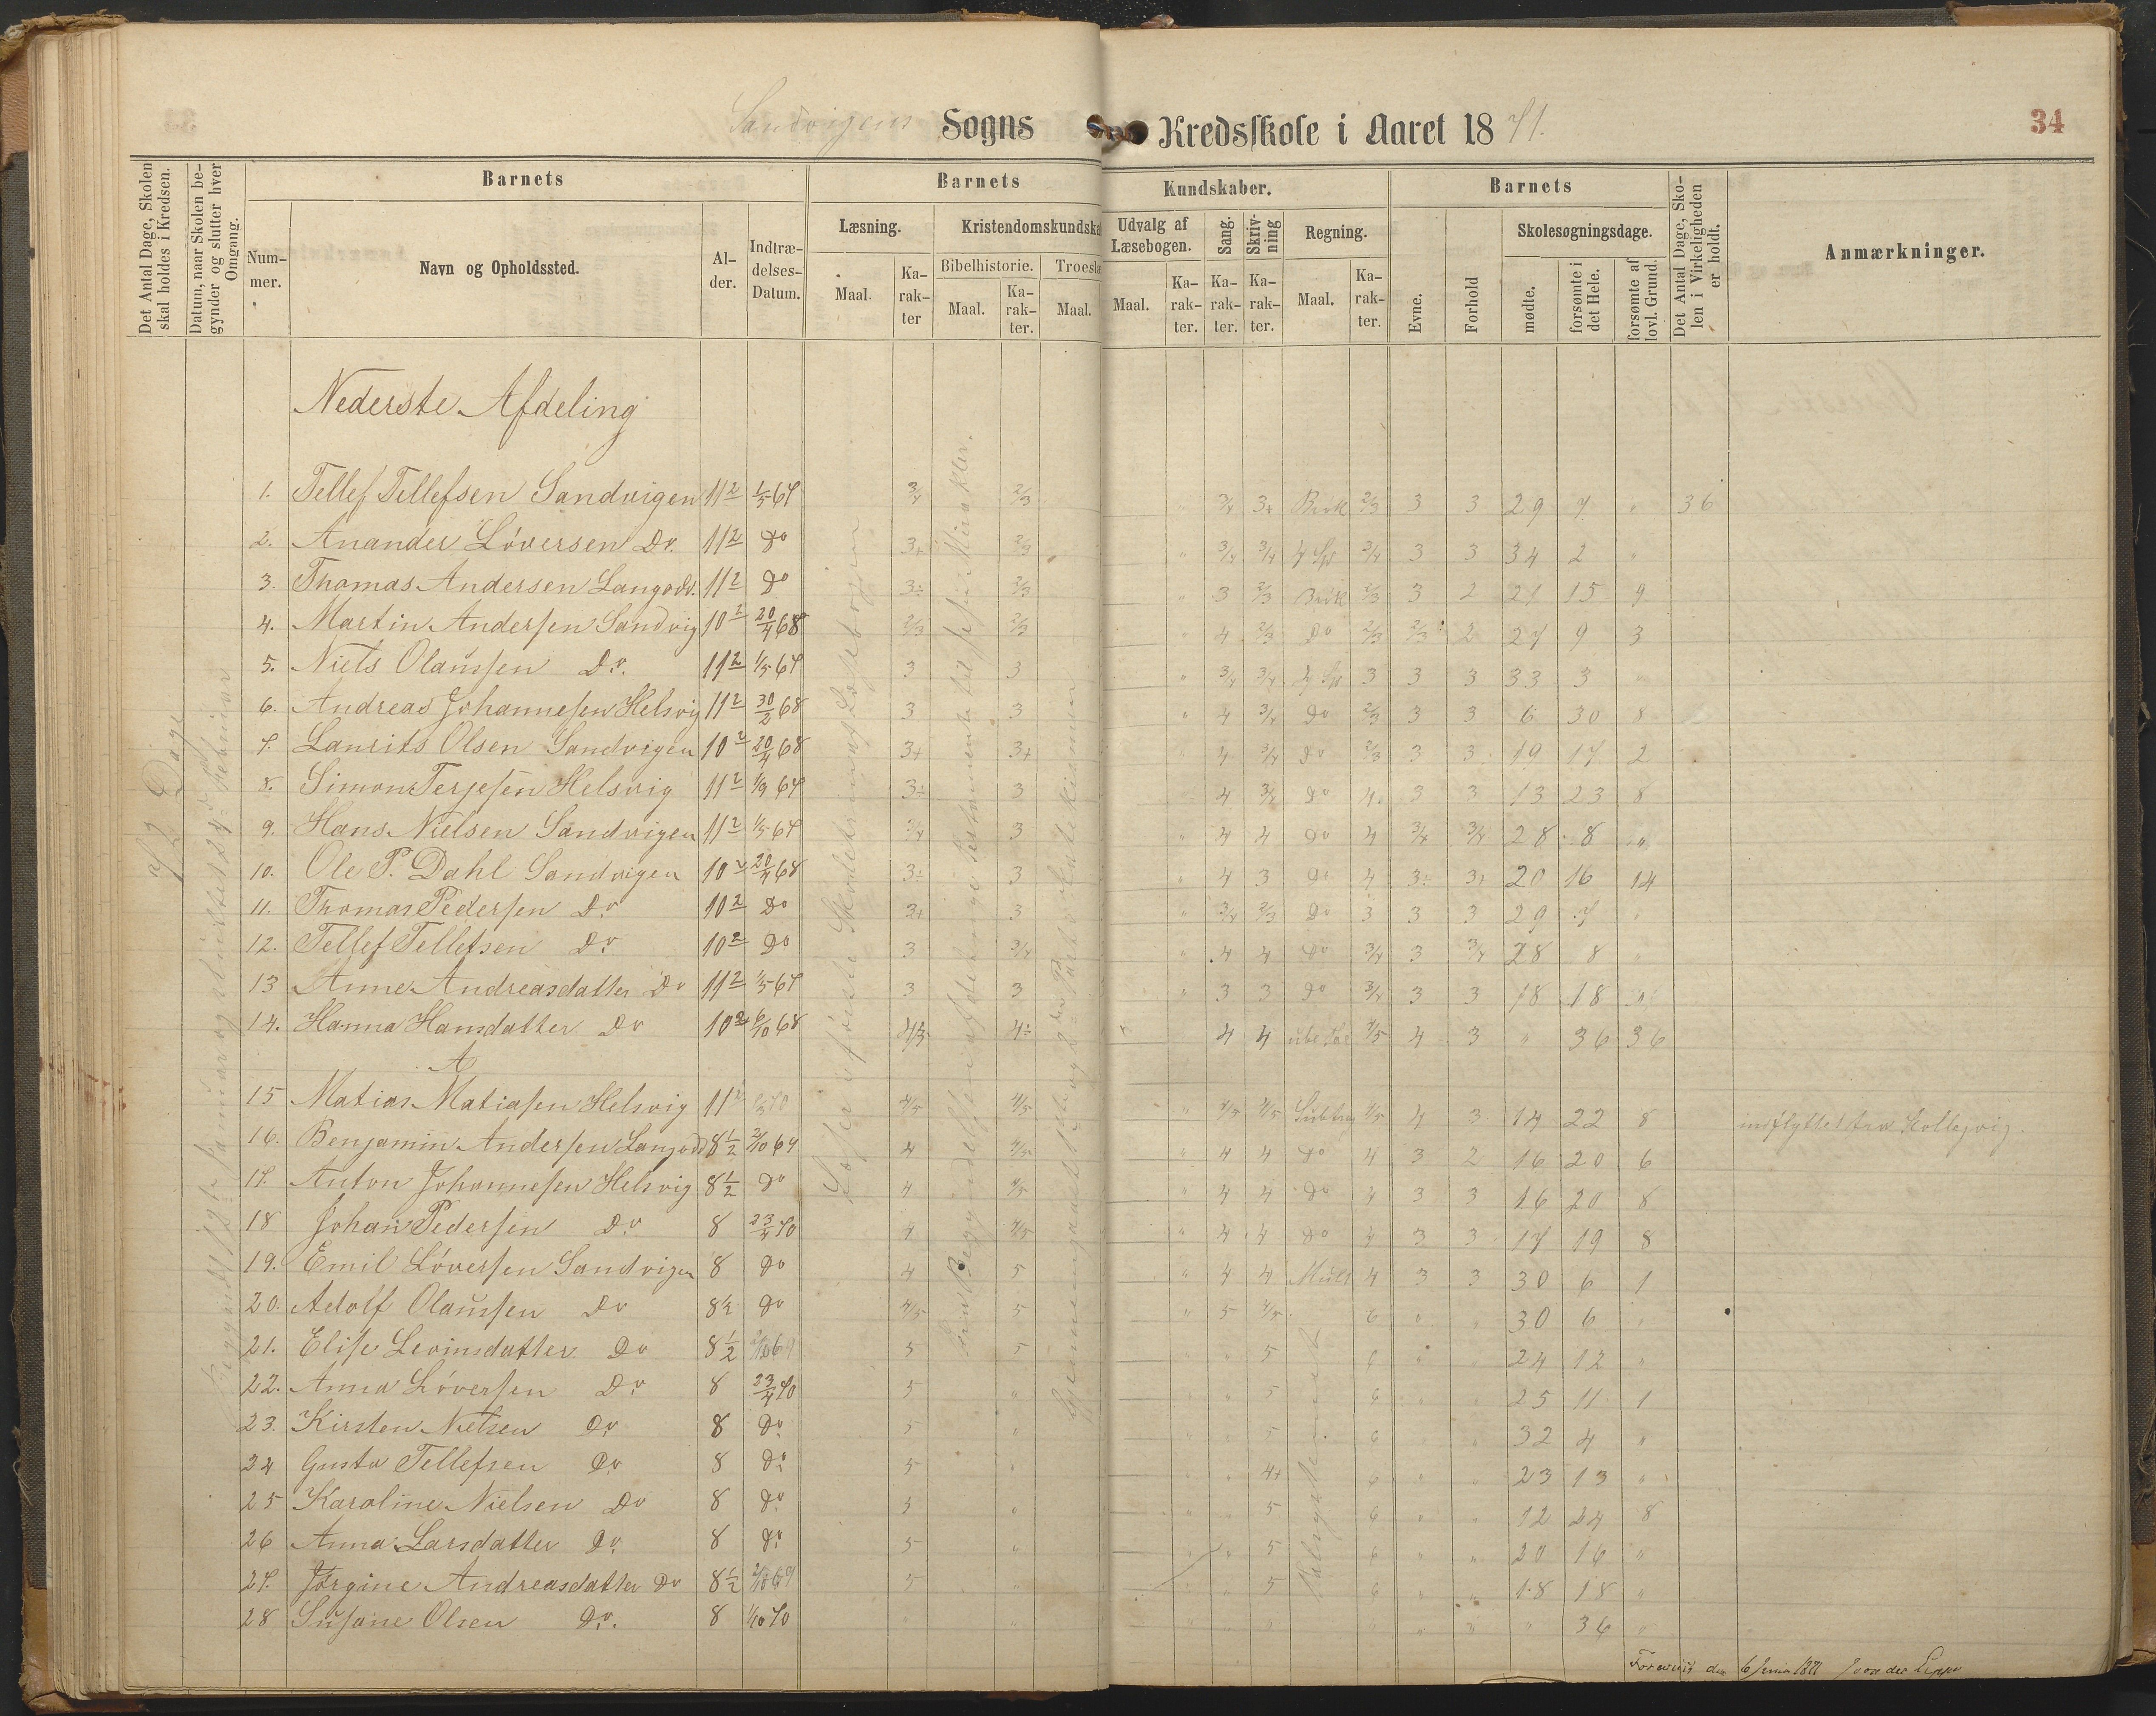 Sandvigens Sogns Kredsskole i Aaret 1871.
34
Det Antal Dage, Skolen skal holdes i Kredsen.
Datum, naar Skolen begynder og slutter hver Omgang.
Barnets
Nummer.
Navn og Opholdssted.
Alder.
Indtrædelses-Datum.
Barnets Kundskaber.
Læsning.
Maal.
Karakter
Kristendomskundska
Bibelhistorie.
Maal.
Karakter.
Troeslæ
Maal.
Udvalg af Læsebogen.
Maal.
Karakter.
Sang.
Karakter.
Skrivning
Karakter.
Regning.
Maal.
Karakter.
Barnets
Evne.
Forhold
Skolesøgningsdage.
mødte.
forsømte i det Hele.
forsømte af lovl. Grund.
Det Antal Dage, Skolen i Virkeligheden er holdt.
Anmærkninger.
72 Dage
Nederste Afdeling
1. Tellef Tellefsen Sandvigen 11½ 1/5 67 3/4 2/3 " 3/4 3+ Brøk 2/3 3 3 29 7 " 36
2. Anander Løversen Do 11½ Do 3+ 2/3 " 3/4 3/4 4 Sp 3/4 3 3 34 2 "
3. Thomas Andersen Langodd. 11½ Do 3÷ 2/3 " 3 2/3 Brøk 2/3 3 2 21 15 9
4. Martin Andersen Sandvig 10½ 20/4 68 2/3 2/3 " 4 2/3 Do 2/3 2/3 2 27 9 3
5. Niels Olaussen Do. 11½ 1/5 67 3 3 " 3/4 3/4 4 Sp 3 3 3 33 3 "
6. Andreas Johannesen Helsvig 11½ 30/2 68 3 3 " 4 3/4 Do 2/3 3 3 6 30 8
7. Laurits Olsen Sandvigen 10½ 20/4 68 3+ 3+ " 4 3/4 Do 2/3 3 3 19 17 2
8. Simon Terjesen Helsvig 11½ 1/9 67 3÷ 3 4 3/4 Do 4 3 3 13 23 8
9. Hans Nielsen Sandvigen 11½ 1/5 67 3/4 3 " 4 4 Do 4 3/4 3/4 28 8 "
10. Ole P. Dahl Sandvigen 10½ 20/4 68 3÷ 3 " 4 3 Do 4 3÷ 3+ 20 16 14
11. Thomas Pedersen Do 10½ Do 3+ 3 " 3/4 2/3 Do 3 3 3 29 7 "
12. Tellef Tellefsen Do 10½ Do 3 3/4 " 4 4 Do 3/4 3 3/4 28 8 "
13 Anne Andreasdatter Do 11½ 1/5 67 3 3 " 3 3 Do 3/4 3 3 18 18 "
14. Hanna Hansdatter Do 10½ 6/10 68 4/5 4÷ 4 4 4/5 4 3 " 36 36
15 Matias Matiasen Helsvig 11½ 4/5 4/5 " 4/5 4/5 Subtra 4/5 4 3 14 22 8 indflyttet fra Kollesvig.
16. Benjamin Andersen Langodd 8½ 2/10 69 4 4/5 " 4 4 Do 4 3 2 16 20 6
17. Anton Johannesen Helsvig 8½ Do 4 4/5 " 4 4 Do 4 3 3 16 20 8
18 Johan Pedersen Do 8 23/4 70 4 4/5 " 4 4 Do 4 3 3 17 19 8
19. Emil Løversen Sandvigen 8 Do 4 5 " 4 4 Mult 4 3 3 30 6 1
20. Adolf Olaussen Do 8½ Do 4/5 5 " 5 4/5 6 " " 30 6 "
21. Elise Levinsdatter Do 8½ 2/10 69 5 5 " " 5 6 " " 24 12 "
22. Anna Løversen Do 8 23/4 70 5 " " " 5 6 " " 25 11 1
23. Kirsten Nielsen Do 8 Do 5 " " " 5 6 " " 32 4 "
24 Gusta Tellefsen Do 8 Do 5 " " " 4+ 6 " " 23 13 "
25 Karoline Nielsen Do 8 Do 5 " " " 5 6 " " 12 24 8
26 Anna Larsdatter Do 8 Do 5 " " " 5 6 " " 20 16 "
27. Jørgine Andreasdatter Do 8½ 2/10 69 5 " " " 5 6 " " 18 18 "
28 Susane Olsen Do. 8 1/10 70 " " " " " " " " 36 "
Læser i første Skoletrin af Læsebogen
Talsystemet
Forevist den 6 Juni 1871